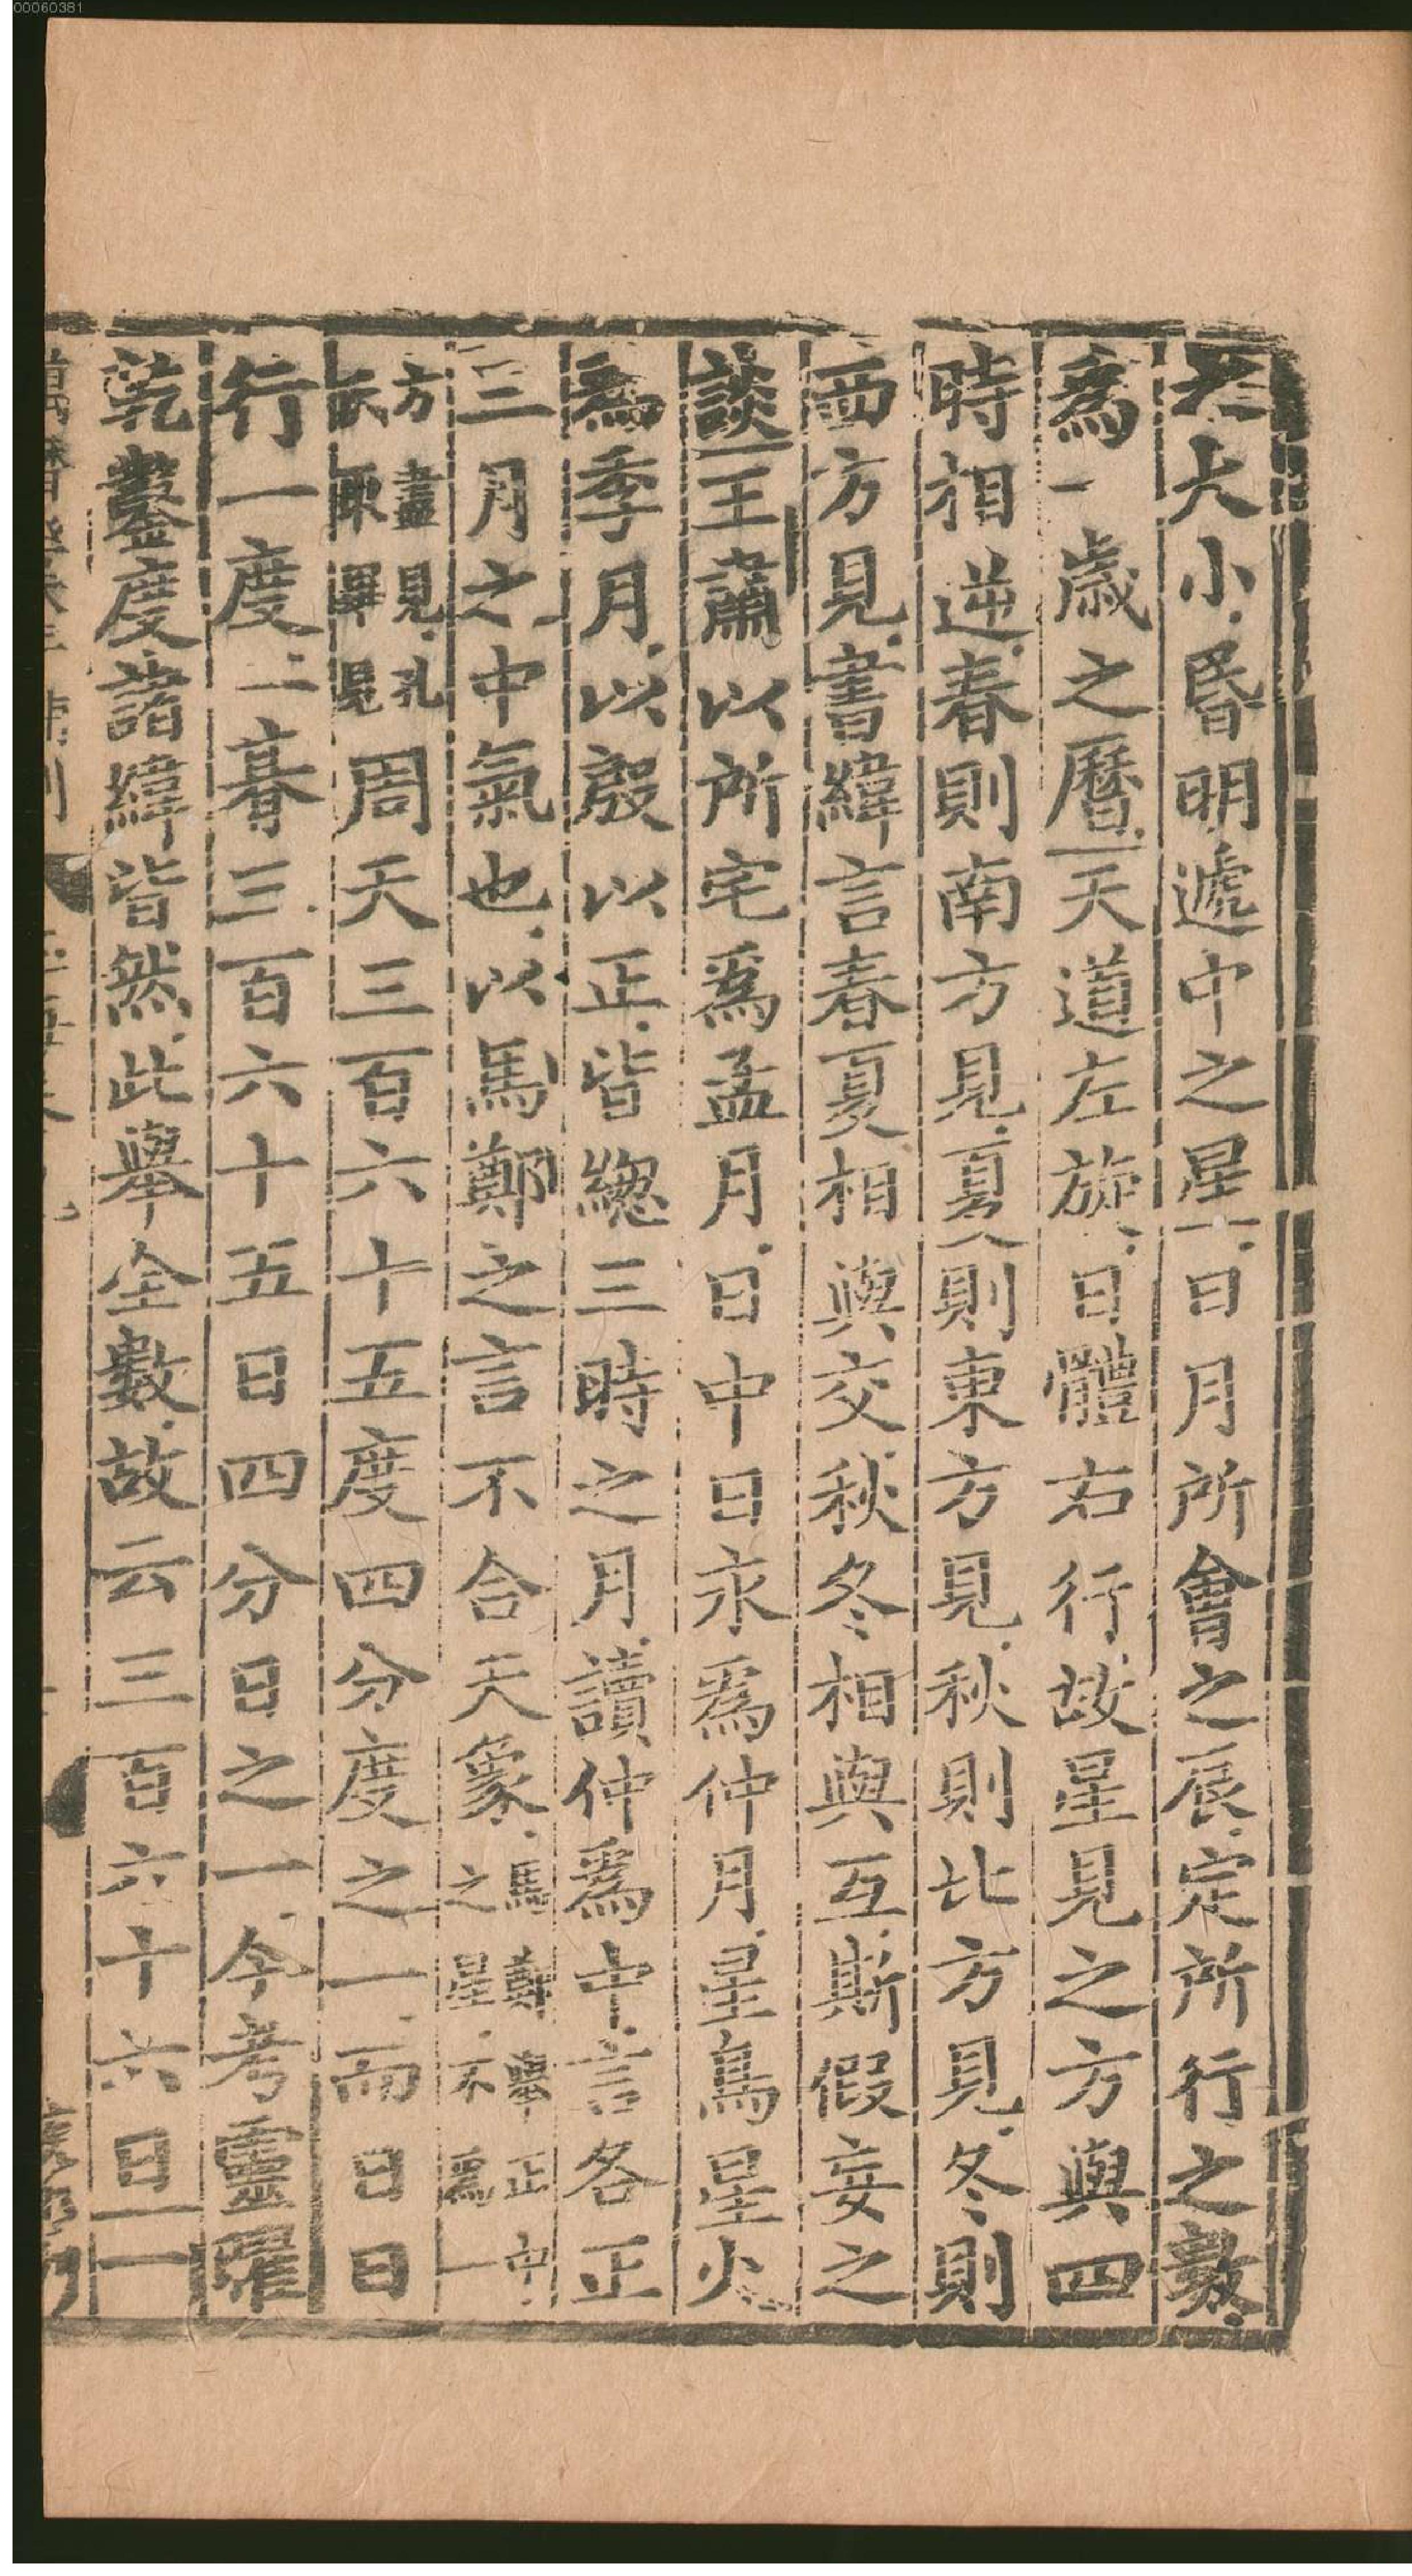 00060381
有大小昬明遞中之星一日月所會之辰定所行之數
爲一歲之曆天道左旋日體右行故星見之方與四
時相逆春則南方見夏則東方見秋則北方見冬則
西方見書緯言春夏相與交秋冬相與互斯假妄之
談王肅以所宅爲孟月日中日永爲仲月星鳥星火
爲季月以殷以正皆緫三時之月讀仲爲中言各正
三月之中氣也以馬鄭之言不合天象馬鄭舉正中
之星不爲一
方盡見孔
取畢見周天三百六十五度四分度之一而日日
行一度一朞三百六十五日四分日之一今考靈曜
乾鑿度諸緯皆然此舉全數故云三百六十六日一